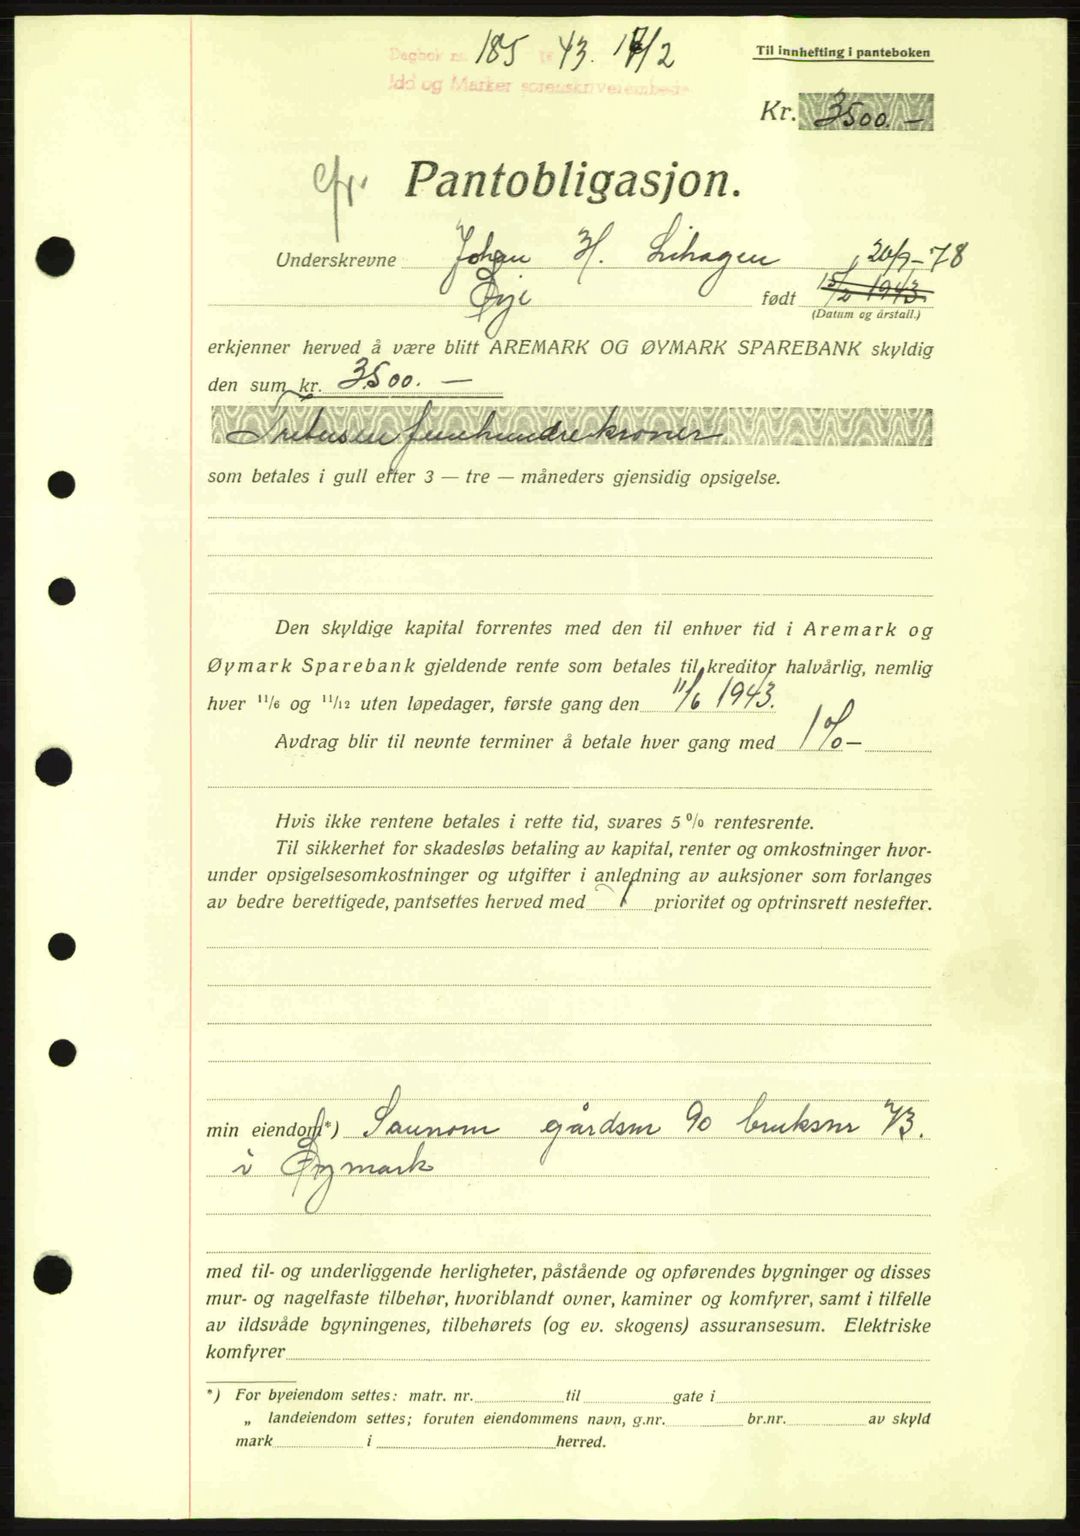 Dagbok nr. 185 19 43. 17/2
Idd og Marker sorenskriverembede
Til innhefting i panteboken
Kr. 3500.—
cfr. Pantobligasjon.
Underskrevne Johan H. Lihagen, 20/9-78
Øyi født 15/2 1943
(Datum og årstall.)
erkjenner herved å være blitt AREMARK OG ØYMARK SPAREBANK skyldig
den sum kr. 3500.—
Tretusen femhundre kroner
som betales i gull efter 3 — tre — måneders gjensidig opsigelse.
Den skyldige kapital forrentes med den til enhver tid i Aremark og
Øymark Sparebank gjeldende rente som betales til kreditor halvårlig, nemlig
hver 11/6 og 11/12 uten løpedager, første gang den 11/6 1943.
Avdrag blir til nevnte terminer å betale hver gang med 1 % —
Hvis ikke rentene betales i rette tid, svares 5 % rentesrente.
Til sikkerhet for skadesløs betaling av kapital, renter og omkostninger hvor-
under opsigelsesomkostninger og utgifter i anledning av auksjoner som forlanges
av bedre berettigede, pantsettes herved med 1 prioritet og optrinsrett nestefter.
min eiendom*) gårdsnr 90 bruksnr 73.
i Øymark
med til- og underliggende herligheter, påstående og opførendes bygninger og disses
mur- og nagelfaste tilbehør, hvoriblandt ovner, kaminer og komfyrer, samt i tilfelle
av ildsvåde bgyningenes, tilbehørets (og ev. skogens) assuransesum. Elektriske
komfyrer
*) For byeiendom settes: matr. nr. til gate i
„ landeiendom settes; foruten eiendommens navn, g.nr. br.nr. av skyld
mark i herred.